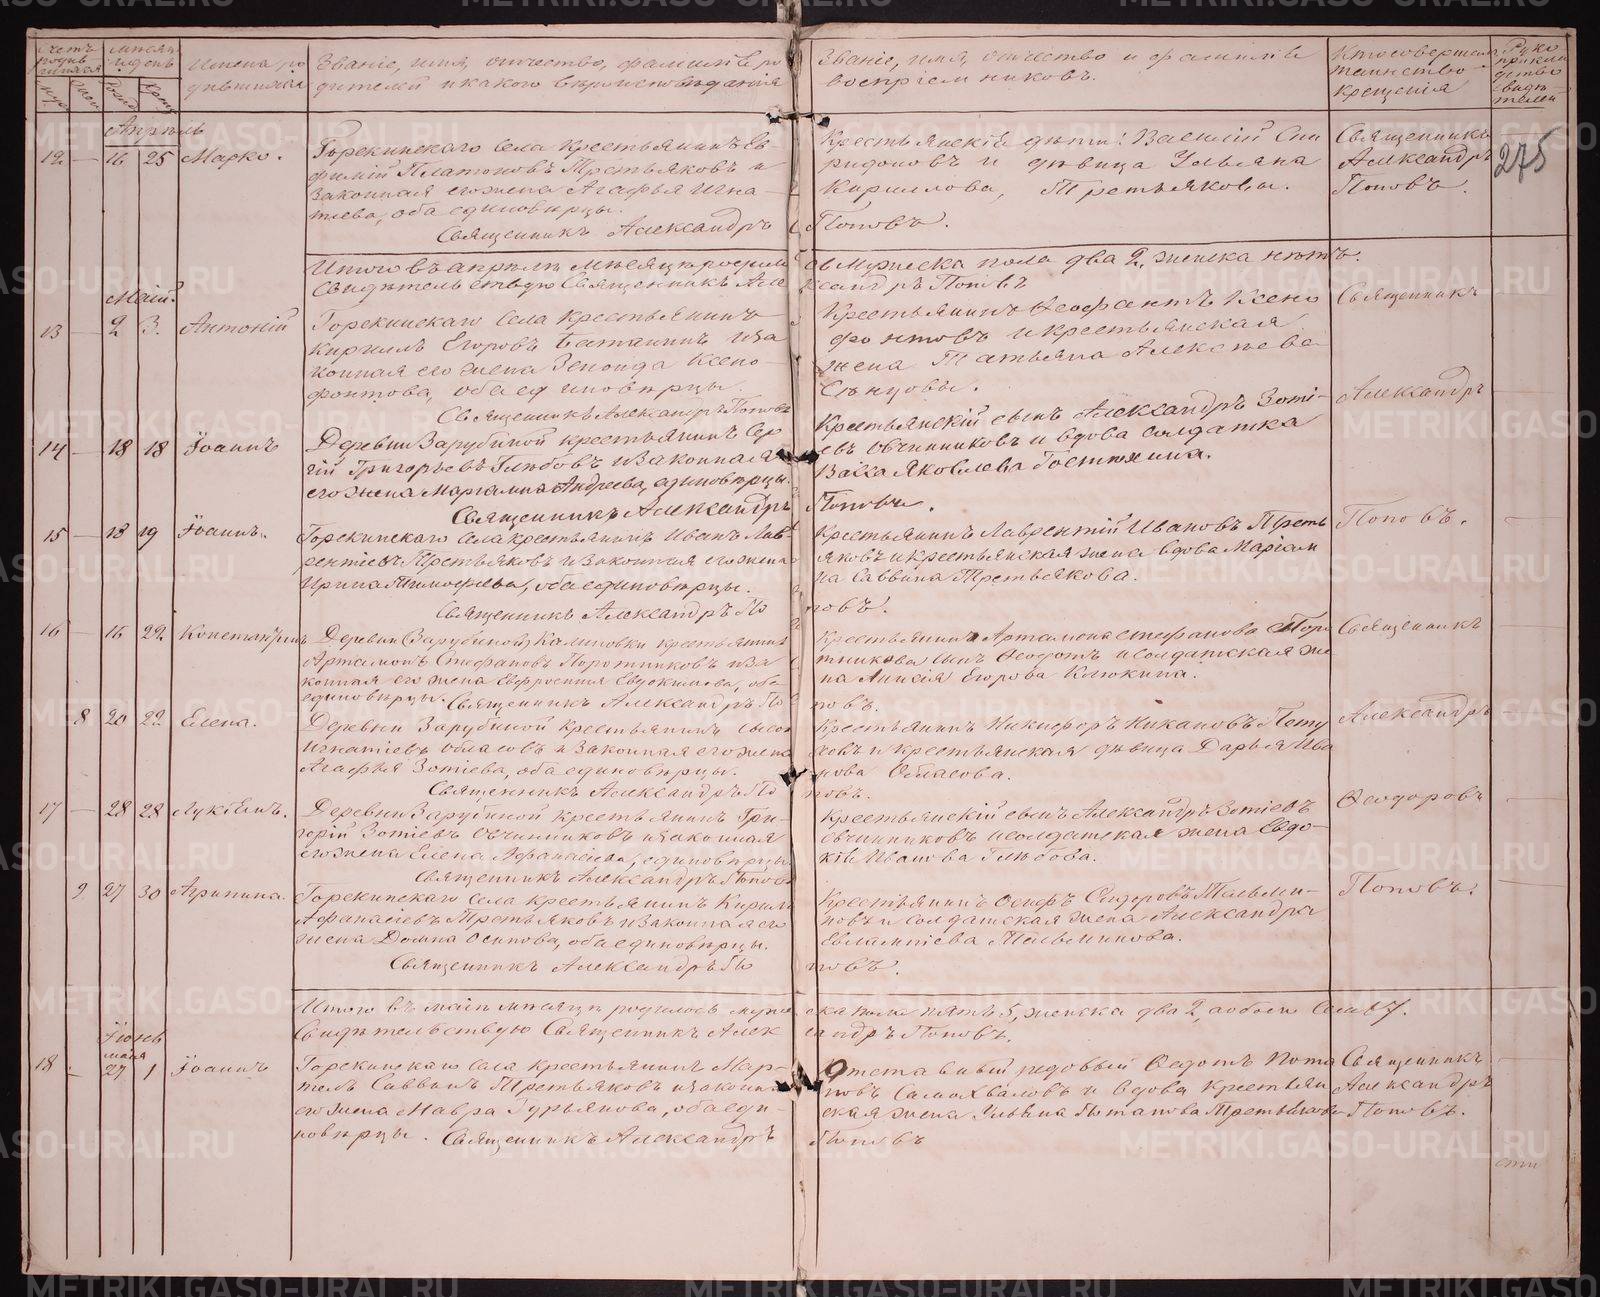 Счетъ родившихся
Мѣсяцъ и день
Имена родившихся
Званіе, имя, отчество, фамилія родителей и какого вѣроисповѣданія
Званіе, имя, отчество и фамилія воспріемниковъ.
Кто совершалъ таинство крещенія
Апрѣль
275
12 — 16 25 Марко.
Горекинскаго села крестьянинъ Ев-
фимій Платоновъ Третьяковъ и
законная его жена Агафья Игна-
тіева, оба единовѣрцы.
Священникъ Александръ Поповъ.
Крестьянскій дѣти: Василій Спи
ридоновъ и дѣвица Ульяна
Кириллова, Третьяковы.
Священникъ
Александръ
Поповъ.
Итого въ апрѣлѣ мѣсяцѣ родилось мужеска пола два 2, женска нѣтъ.
Свидѣтельствую Священникъ Александръ Поповъ
Маій.
13 — 2 3. Антоній
Горекинскаго села крестьянинъ
Кириллъ Егоровъ и за
конная его жена Зенонда Ксено-
фонтова, оба единовѣрцы.
Священникъ Александръ Поповъ
Крестьянинъ Феофантъ Ксено
фонтовъ и крестьянская
жена Татьяна Алексѣева
Сѣнцовы.
Священникъ
14 — 18 18 Іоаннъ
Деревни Зарубиной крестьянинъ Сер
гій Григорьевъ Глѣбовъ и законная
его жена Маріамна Андреева, единовѣрцы.
Священникъ Александръ Поповъ.
Крестьянскій сынъ Александръ Зоті-
евъ Овчинниковъ и вдова солдатка
Васса Яковлева Гостюхина.
Александръ
15 — 18 19 Іоаннъ.
Горекинскаго села крестьянинъ Иванъ Лав-
рентіевъ Третьяковъ и законная его жена
Ирина Тимофѣева, оба единовѣрцы.
Священникъ Александръ Поповъ.
Крестьянинъ Лаврентій Ивановъ Треть
яковъ и крестьянская жена вдова Маріам
на Саввина Третьякова.
Поповъ.
16 — 16 22 Константинъ
Деревни (Зарубиной) Калиновки крестьянинъ
Артамонъ Стефановъ Поротниковъ и за
конная его жена Евфросинія Евдокимова, оба
единовѣрцы. Священникъ Александръ Поповъ.
Крестьянинъ Артамона Стефанова Поро
тникова сынъ Феодотъ и солдатская же
на Анисія Егорова Клюкина.
Священникъ
8 20 22 Елена.
Деревни Зарубиной крестьянинъ Сысой
Игнатіевъ Обласовъ и законная его жена
Агафья Зотіева, оба единовѣрцы.
Священникъ Александръ Поповъ.
Крестьянинъ Никифоръ Никановъ Пету
ховъ и крестьянская дѣвица Дарья Ива
нова Обласова.
Александръ
17 — 28 28 Лукіянъ.
Деревни Зарубиной крестьянинъ Гри-
горій Зотіевъ Овчинниковъ и законная
его жена Елена Афанасіева, единовѣрцы.
Священникъ Александръ Поповъ
Крестьянскій сынъ Александръ Зотіевъ
Овчинниковъ и солдатская жена Евдо-
кія Иванова Глѣбова.
Феодоровъ
9 27 30 Агрипина.
Горекинскаго села крестьянинъ Кирилъ
Афанасіевъ Третьяковъ и законная его
жена Домна Осипова, оба единовѣрцы.
Священникъ Александръ Поповъ.
Крестьянинъ Осифъ Сидоровъ Тильми-
новъ и солдатская жена Александра
Евлампіева Тильминова.
Поповъ.
Итого въ маіѣ мѣсяцѣ родилось мужеска пола пять 5, женска два 2, а обоего семь 7.
Свидѣтельствую Священникъ Александръ Поповъ.
Іюнь
мая
18 — 27 1 Іоаннъ
Горекинскаго села крестьянинъ Мар-
тинъ Саввинъ Третьяковъ и законная
его жена Мавра Гурьянова, оба еди-
новѣрцы. Священникъ Александръ Поповъ
Отставный рядовый Федотъ Пота
повъ Самохваловъ и вдова крестьян
ская жена Ульяна Потапова Третьякова
Священникъ
Александръ
Поповъ.
METRIKI.GASO-URAL.RU